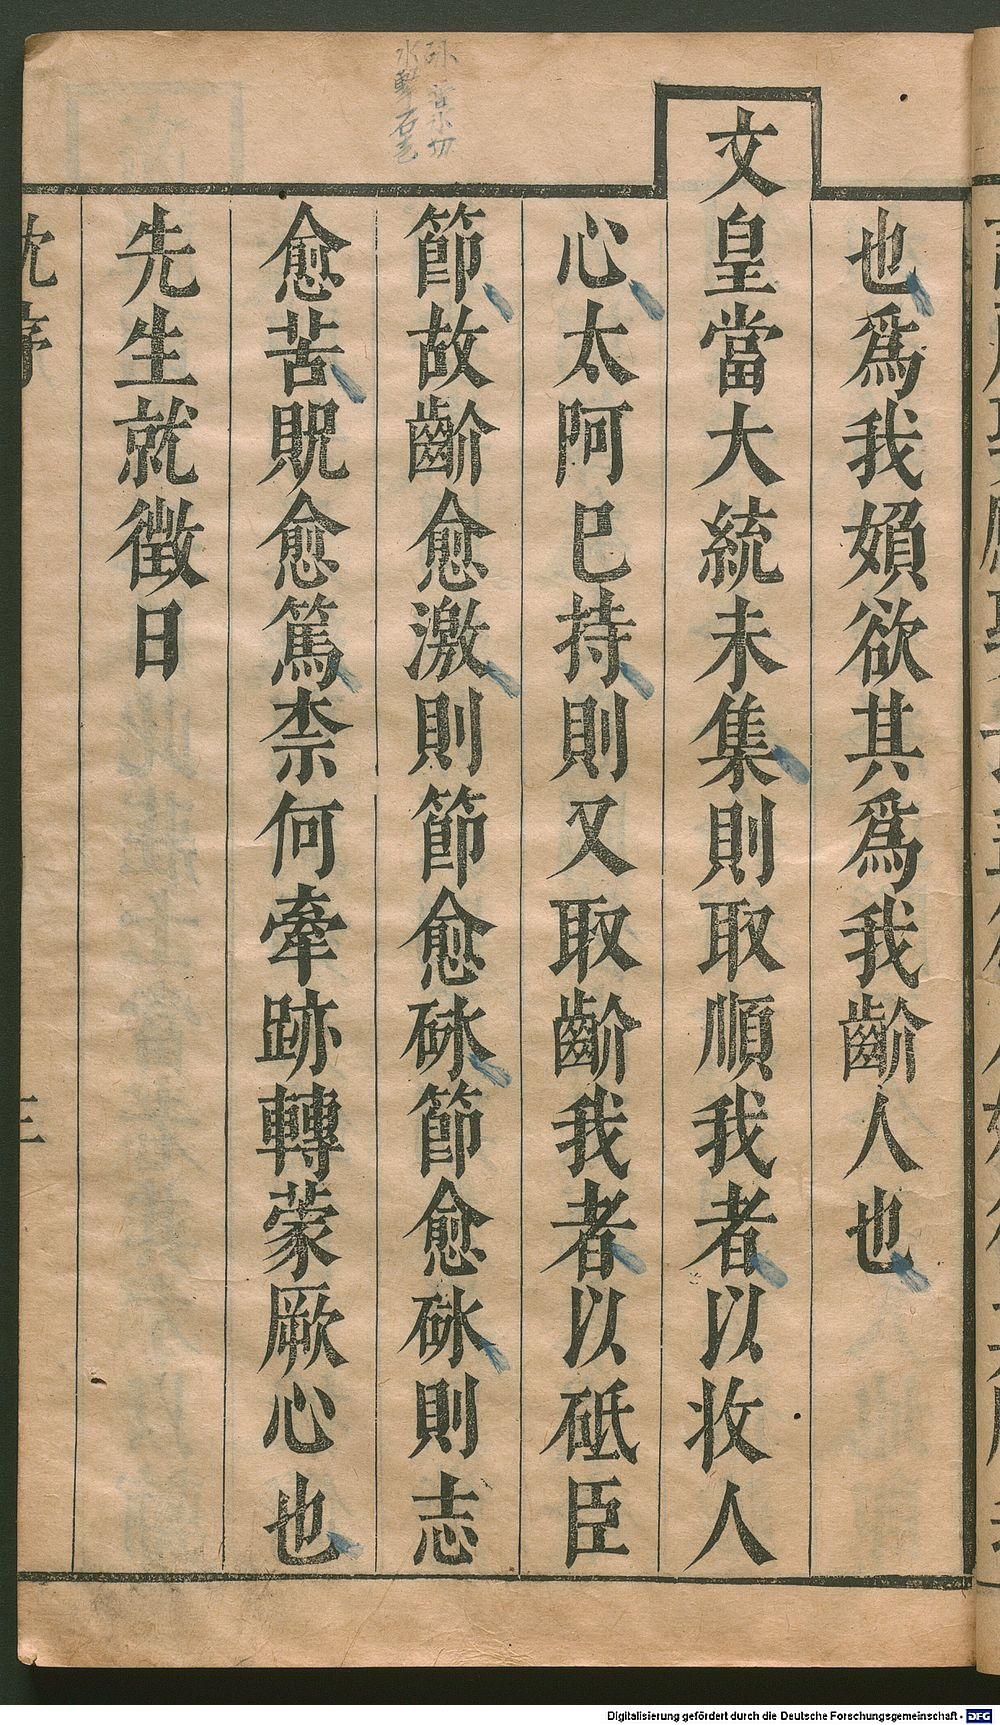 也爲我媍欲其爲我齘人也
文皇當大統未集則取順我者以收人
心太阿巳持則又取齘我者以砥臣
節故齘愈激則節愈砯節愈砯則志
愈苦貺愈篤柰何牽跡轉蒙厥心也
先生就徵日
三
Digitalisierung gefördert durch die Deutsche Forschungsgemeinschaft - DFG